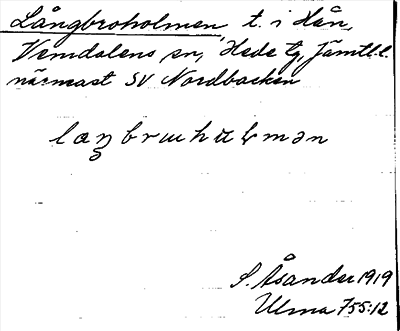 Långbroholmen t. i Hån,
Vemdalens sn, Hede tg, Jämtl. l.
närmast SV Nordbacken
S. Åsander 1919
Ulma 755:12